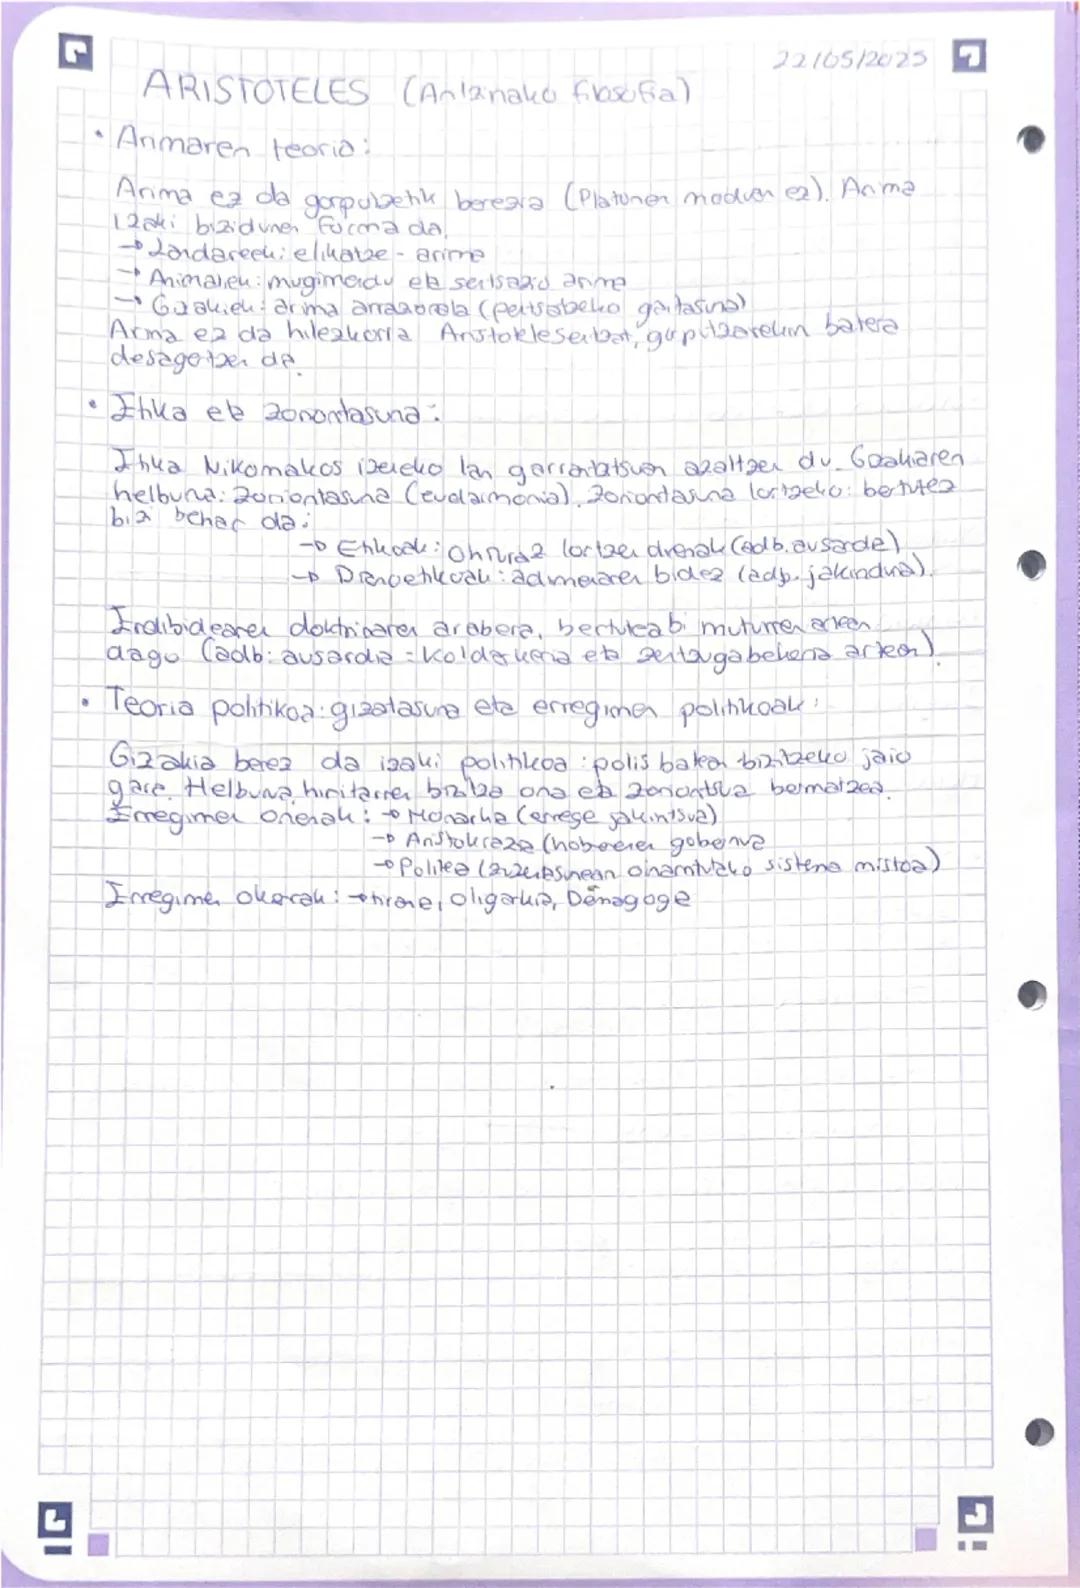 22/05/2025
ARISTOTELES (Antzinako filosofia)
• Arimaren teoria:
Arima ez da gorputzetik berezia (Platonen moduan ez). Arima
izaki bizidunen forma da.
→ Landareek: elikatze-arima
→ Animaliek: mugimendu eta sentsazio arima
→ Gizakiek: arima arrazionala (pentsatzeko gaitasuna)
Arima ez da hilezkorra Aristotelesentzat, gorputzarekin batera
desagertzen da.
• Etika eta zoriontasuna:
Etika Nikomakos izeneko lan garrantzitsuan azaltzen du. Gizakiaren
helburua: zoriontasuna (eudaimonia). Zoriontasuna lortzeko: bertutez
bizi behar da:
→ Etikoak: ohituraz lortzen direnak (adb. ausardia)
→ Dianoetikoak: adimenaren bidez (adb. jakinduria).
Erdibidearen doktrinaren arabera, bertutea bi muturren artean
dago (adb: ausardia = koldarkeria eta zentzugabekeria artean).
• Teoria politikoa: gizatasuna eta erregimen politikoak:
Gizakia berez da izaki politikoa: polis batean bizitzeko jaio
gara. Helburua, hiritarren bizitza ona eta zoriontsua bermatzea.
Erregimen onenak: → Monarkia (errege jakintsua)
→ Aristokrazia (hoberenen gobernua
→ Politea ( oinarritutako sistema mistoa)
Erregimen okerrak: → tirania, oligarkia, Demagogia